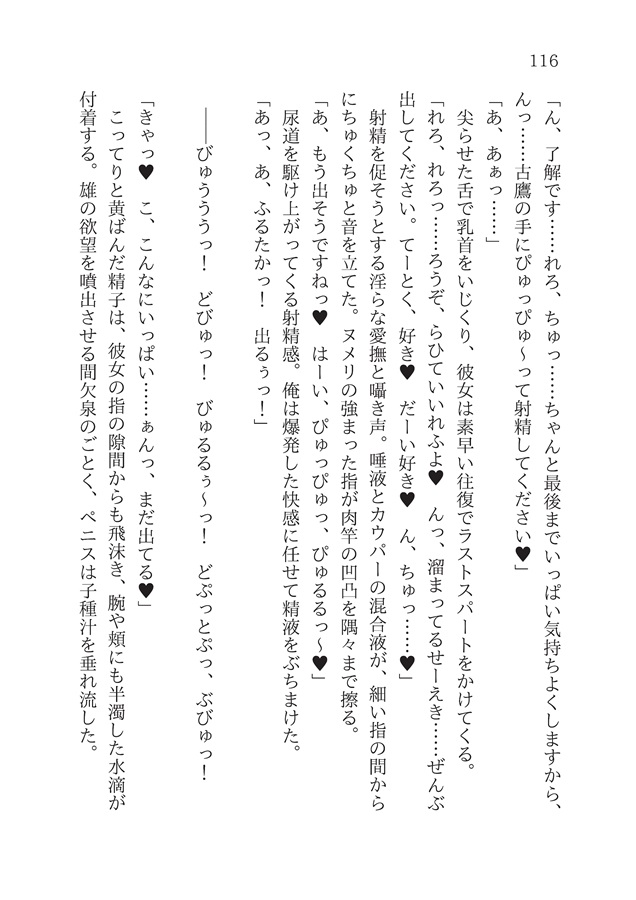 116
「ん、了解です……れろ、ちゅっ……ちゃんと最後までいっぱい気持ちよくしますから、
んっ……古鷹の手にぴゅっぴゅ～って射精してください♥」
「あ、あぁっ……」
　尖らせた舌で乳首をいじくり、彼女は素早い往復でラストスパートをかけてくる。
「れろ、れろっ……ろうぞ、らひていいれふよ♥　んっ、溜まってるせーえき……ぜんぶ
出してください。てーとく、好き♥　だーい好き♥　ん、ちゅっ……♥」
　射精を促そうとする淫らな愛撫と囁き声。唾液とカウパーの混合液が、細い指の間から
にちゅくちゅと音を立てた。ヌメリの強まった指が肉竿の凹凸を隅々まで擦る。
「あ、もう出そうですねっ♥　はーい、ぴゅっぴゅっ、ぴゅるるっ～♥」
　尿道を駆け上がってくる射精感。俺は爆発した快感に任せて精液をぶちまけた。
「あっ、あ、ふるたかっ！　出るぅっ！」
――びゅうううっ！　どびゅっ！　びゅるるぅ～っ！　どぷっとぷっ、ぶびゅっ！
「きゃっ♥　こ、こんなにいっぱい……ぁんっ、まだ出てる♥」
　こってりと黄ばんだ精子は、彼女の指の隙間からも飛沫き、腕や頬にも半濁した水滴が
付着する。雄の欲望を噴出させる間欠泉のごとく、ペニスは子種汁を垂れ流した。